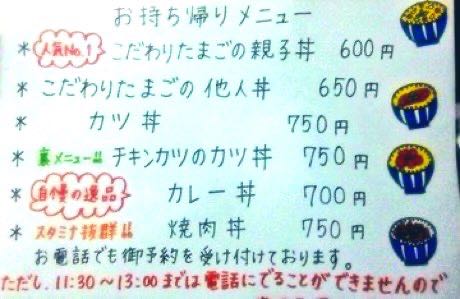 お持ち帰りメニュー
* 人気No.1 こだわりたまごの親子丼 600円
* こだわりたまごの他人丼 650円
* カツ丼 750円
* 裏メニュー!! チキンカツのカツ丼 750円
* 自慢の逸品 カレー丼 700円
* スタミナ抜群!! 焼肉丼 750円
お電話でも御予約を受け付けております。
ただし、11:30～13:00までは電話にでることができませんので